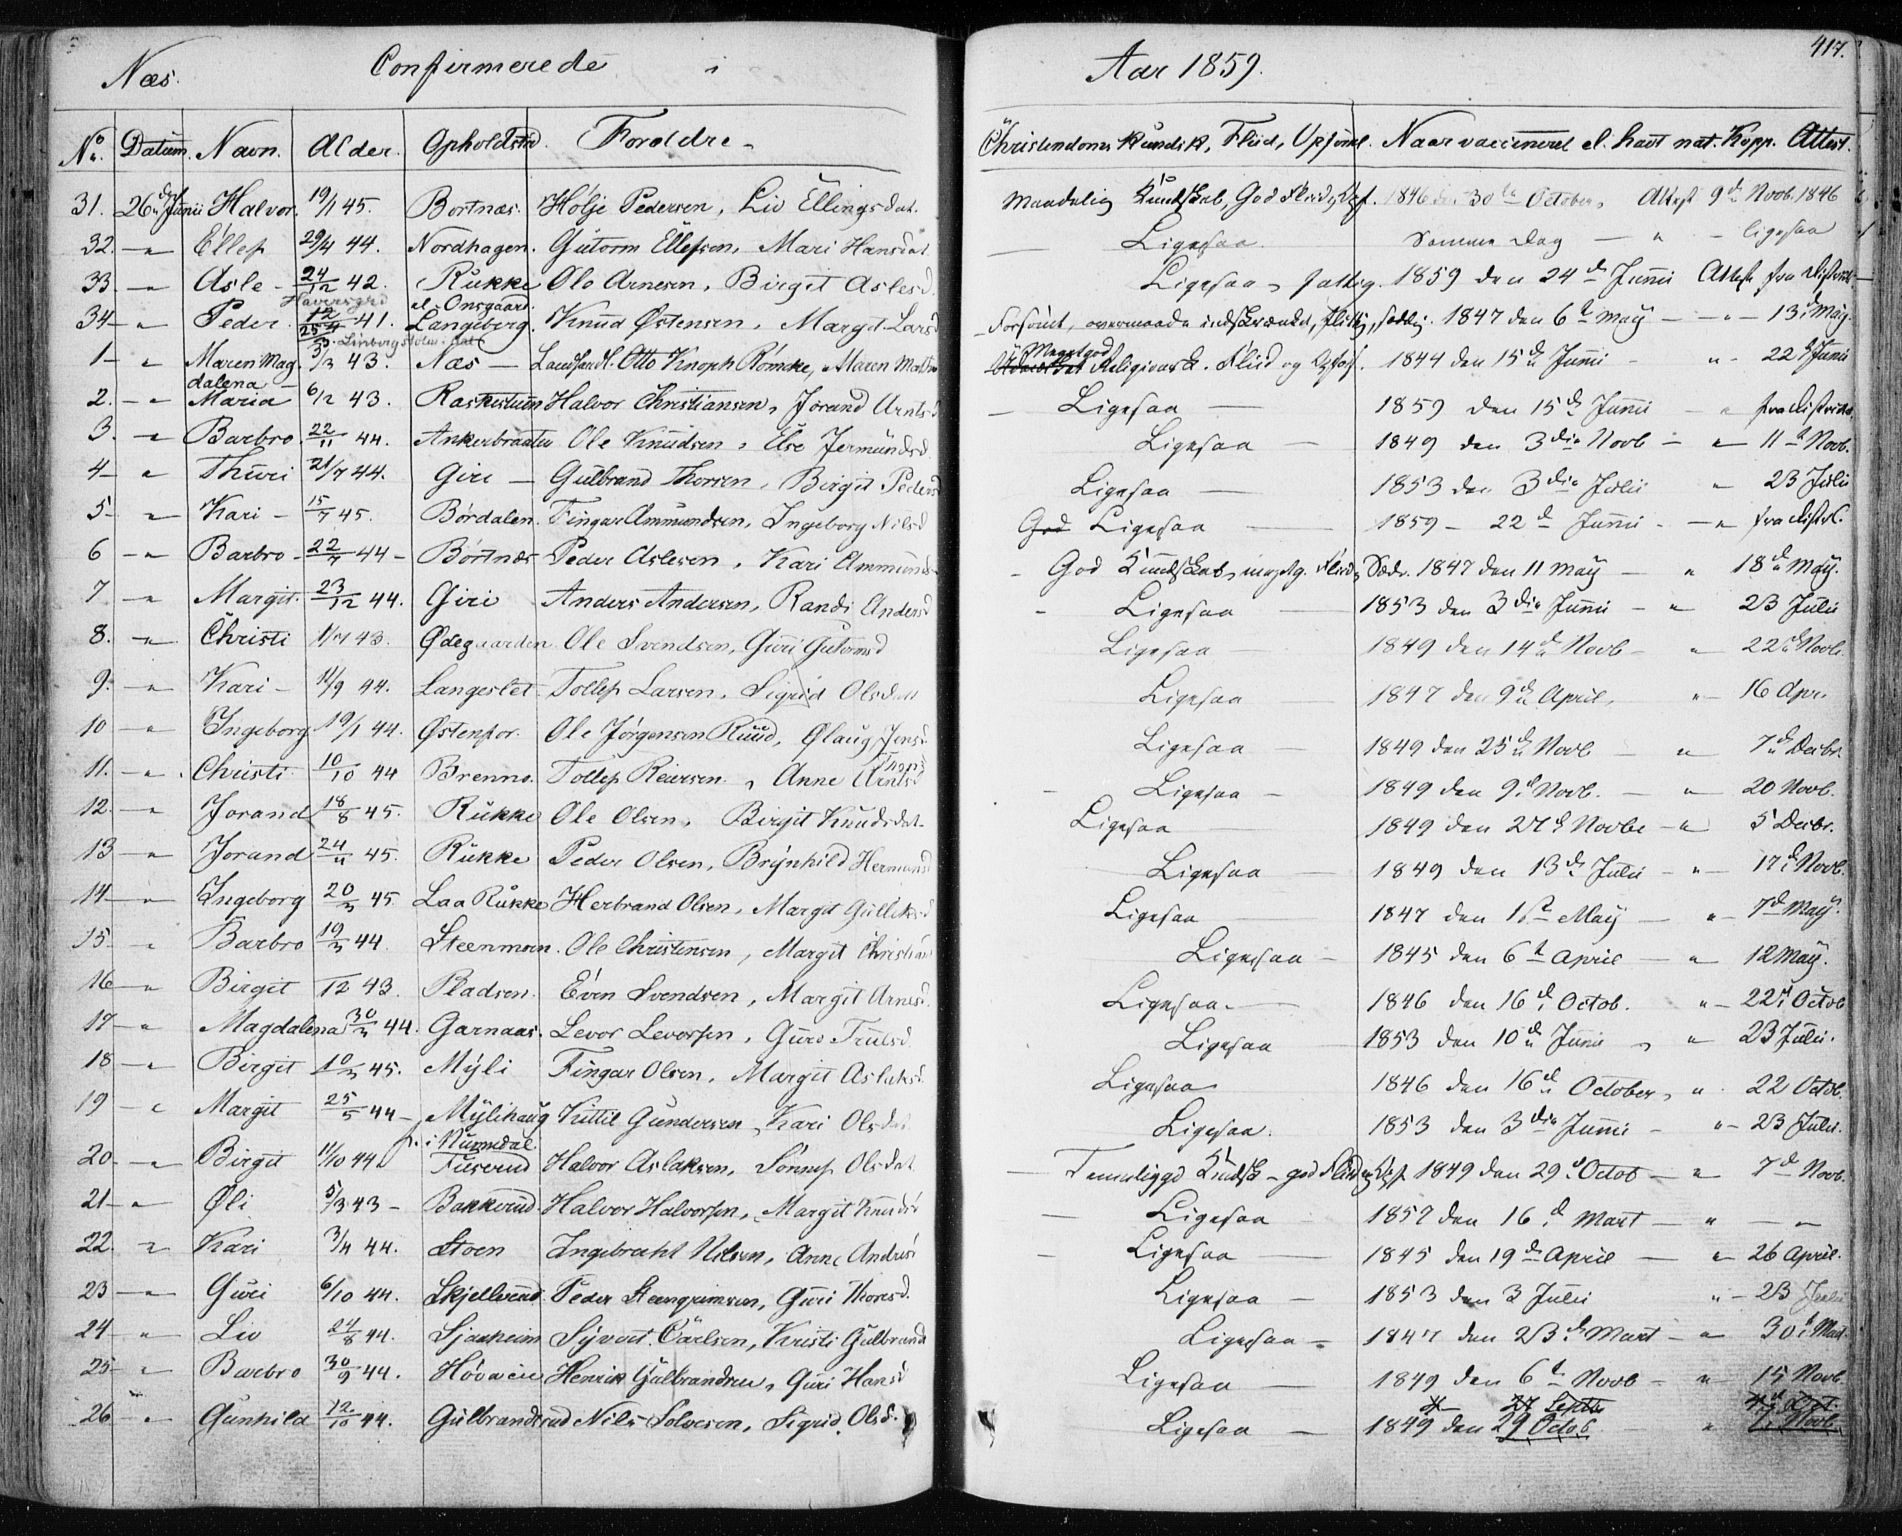 417.
Næs. Confirmerede i Aar 1859.
No. Datum. Navn. Alder. Opholdstd Foroldre - Christendoms Kundsk, Fliid, Opførsel. Naar vaccineret el. havt nat. Kopp. Attest.
31. 26de Junii Halvor. 19/1 45. Bortnæs. Holje Pedersen, Liv Ellingsdat. Maadelig Kundskab, God Fliid, Opf. 1846 den 30te October, Attest 9de Novb. 1846
32. - " Ellef 29/4 44. Nordhagen. Gutorm Ellefsen, Mari Hansdat - Ligesaa. Samme Dag - " - ligesaa
33 - " Asle - 24/12 42. Rukke Ole Arnesen, Birgit Aslesd. Ligesaa, fattig. 1859 den 24de Junii Attest fra
Haversgrd el. Onsgaard.
34 - " Peder. 12/4 41. Langeberg. Knud Østensen, Margit Larsd Forsømt, overmaade indskrænket, flittig, sædelig. 1847 den 6te May - " - 13de May.
1 - " Maren Mag. 3/3 43. Næs - Otto Knoph Rømcke, Maren Religionsk. Fliid og Opførs. 1844 den 15de Junii - " 22de Junii
Meget god
dalena -
2. - " Maria 6/12 43. Halvor Christiansen, Jorand Arntsd - Ligesaa - 1859 den 15de Junii - "
3. - " Barbro. 22/11 44. Ankerbraaten Ole Knudsen, Else Jermundsd Ligesaa - 1849 den 3die Novb - " - 11te Novb.
4 - " Thuri 21/7 44. Giri - Gulbrand Thorsen, Birgit Pedersd Ligesaa - 1853 den 3die Julii " 23 Julii
5 - " Kari - 15/7 45. Børdalen. Fingar Ammundsen, Ingeborg Nilsd God Ligesaa - 1859 - 22de Junii - - "
6 - " Barbro - 22/7 44 - Børtnæs Peder Aslesen, Kari Ammunds - God Kundskab, megetg. Fliid, Sæder. 1847 den 11 May - " 18de May.
7 - " Margit. 23/12 44. Giri Anders Andersen, Randi Andersd - Ligesaa - 1853 den 3die Junii - " 23 Julii
8. - " Christi 1/7 43. Ødegaarden Ole Svendsen, Guri Gutormsd Ligesaa - 1849 den 14de Novb - " 22de Novb.
9. - " Kari - 11/9 44. Langeslet. Tollef Larsen, Sigrid Olsdatt Ligesaa - 1847 den 9de April, " - 16 Apr.
10 - " Ingeborg 19/1 44. Østenfor. Ole Jørgensen Ruud, Ølaug Jensd. Ligesaa - 1849 den 25de Novb - " 7de Decbr.
11. - " Christi 10/10 44 Brenno. Tollef Reiersen, Anne Arntsd - Ligesaa - 1849 den 9de Novb. - " 20 Novb.
12. - " Jorand 18/8 45. Rukke Ole Olsen, Birgit Knudsdat. Ligesaa - 1849 den 27de Novbr - " 5 Decbr.
13 - " Jorand 24/4 45. Rukke Peder Olsen, Brynhild Hermunsd Ligesaa - 1849 den 13de Julii - " - 17de Novb.
14 - " Ingeborg 20/3 45. Laa Rukke Herbrand Olsen, Margit Gulliksd Ligesaa - 1847 den 1ste May - " 7de May.
15 - " Barbro 19/3 44. Steenmoen. Ole Christensen, Margit Christians Ligesaa - 1845 den 6te April - " 12 May.
16 - " Birgit /12 43. Pladsen. Even Svendsen, Margit Arnesd. Ligesaa. - 1846 den 16de Octob. " - 22de Octob
17 - " Magdalena 30/3 44. Garnaas. Levor Levorsen, Guro Trulsd. Ligesaa 1853 den 10de Junii, " 23 Julii.
18 - " Birgit 10/3 45. Myli Fingar Olsen, Margit Aslaksd. Ligesaa 1846 den 16de October, " 22 Octob.
19 - " Margit 25/5 44 - Mylihaug Kittil Gundersen, Kari Olsdat Ligesaa. 1853 den 3die Junii - " - 23 Julii.
f. i Numedal.
20 - " Birgit 11/10 44. Halvor Aslaksen, Sønnef Olsdat - Temmeligg Kundsk - god Flid og Opf. 1849 den 29de Octob - " 7de Novb.
21 - " Øli 5/3 43 - Bakkerud. Halvor Halvorsen, Margit Knudsd - Ligesaa 1857 den 16de Mart - " - "
22. " Kari 3/4 44. Stoen Ingebrecht Nilsen, Anne Andersd - Ligesaa - 1845 den 19de April - " 26 April.
23 - " Guri 6/10 44. Skjellerud Peder Steengrimsen, Guri Thoresd. Ligesaa - 1853 den 3 Julii " - 23 Julii
24 " Liv 24/8 44. Sjarheim Syvert Carlsen, Kristi Gulbrands Ligesaa - 1847 den 23de Mart - " 30te Mart.
25 - " Barbro 30/9 44. Høvaeie Henrik Gulbrandsen, Guri Hansd Ligesaa - 1849 den 6te Novb - " 15 Novb.
27 Septbr
26 - " Gunhild 12/10 44. Gulbrandsrud Nils Solvesen, Sigrid Olsd. Ligesaa - 1849 den 29 Octob. " 7de Novb.